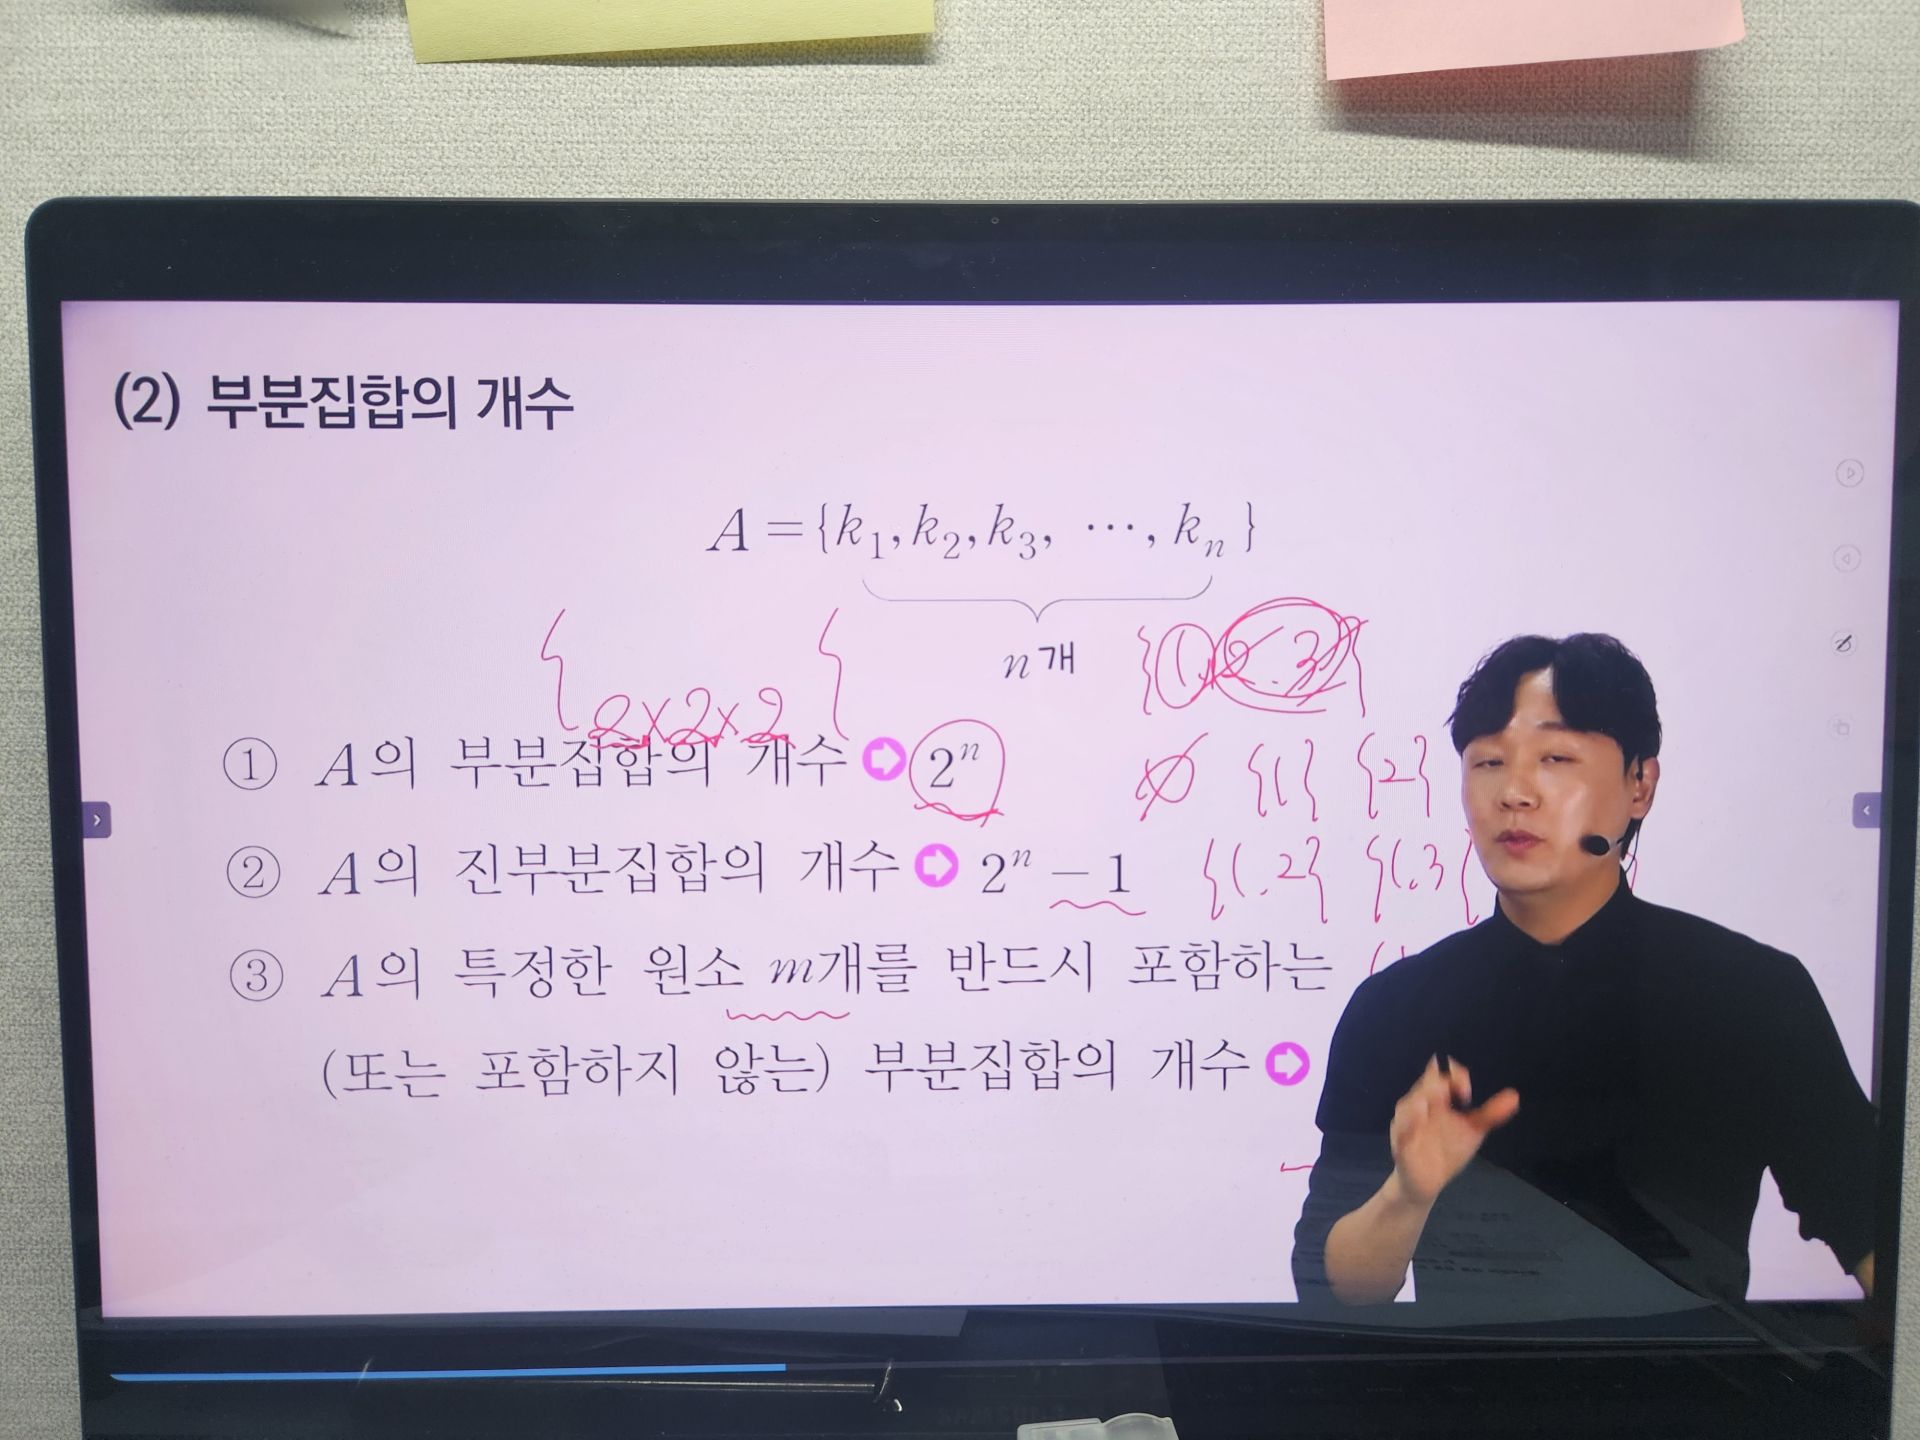 (2) 부분집합의 개수
A = {k₁, k₂, k₃, ⋯, kₙ}
n개
{1, 2, 3}
{2×2×2}
① A의 부분집합의 개수 ➪ 2ⁿ
∅ {1} {2}
② A의 진부분집합의 개수 ➪ 2ⁿ − 1
{1, 2} {1, 3}
③ A의 특정한 원소 m개를 반드시 포함하는
(또는 포함하지 않는) 부분집합의 개수 ➪